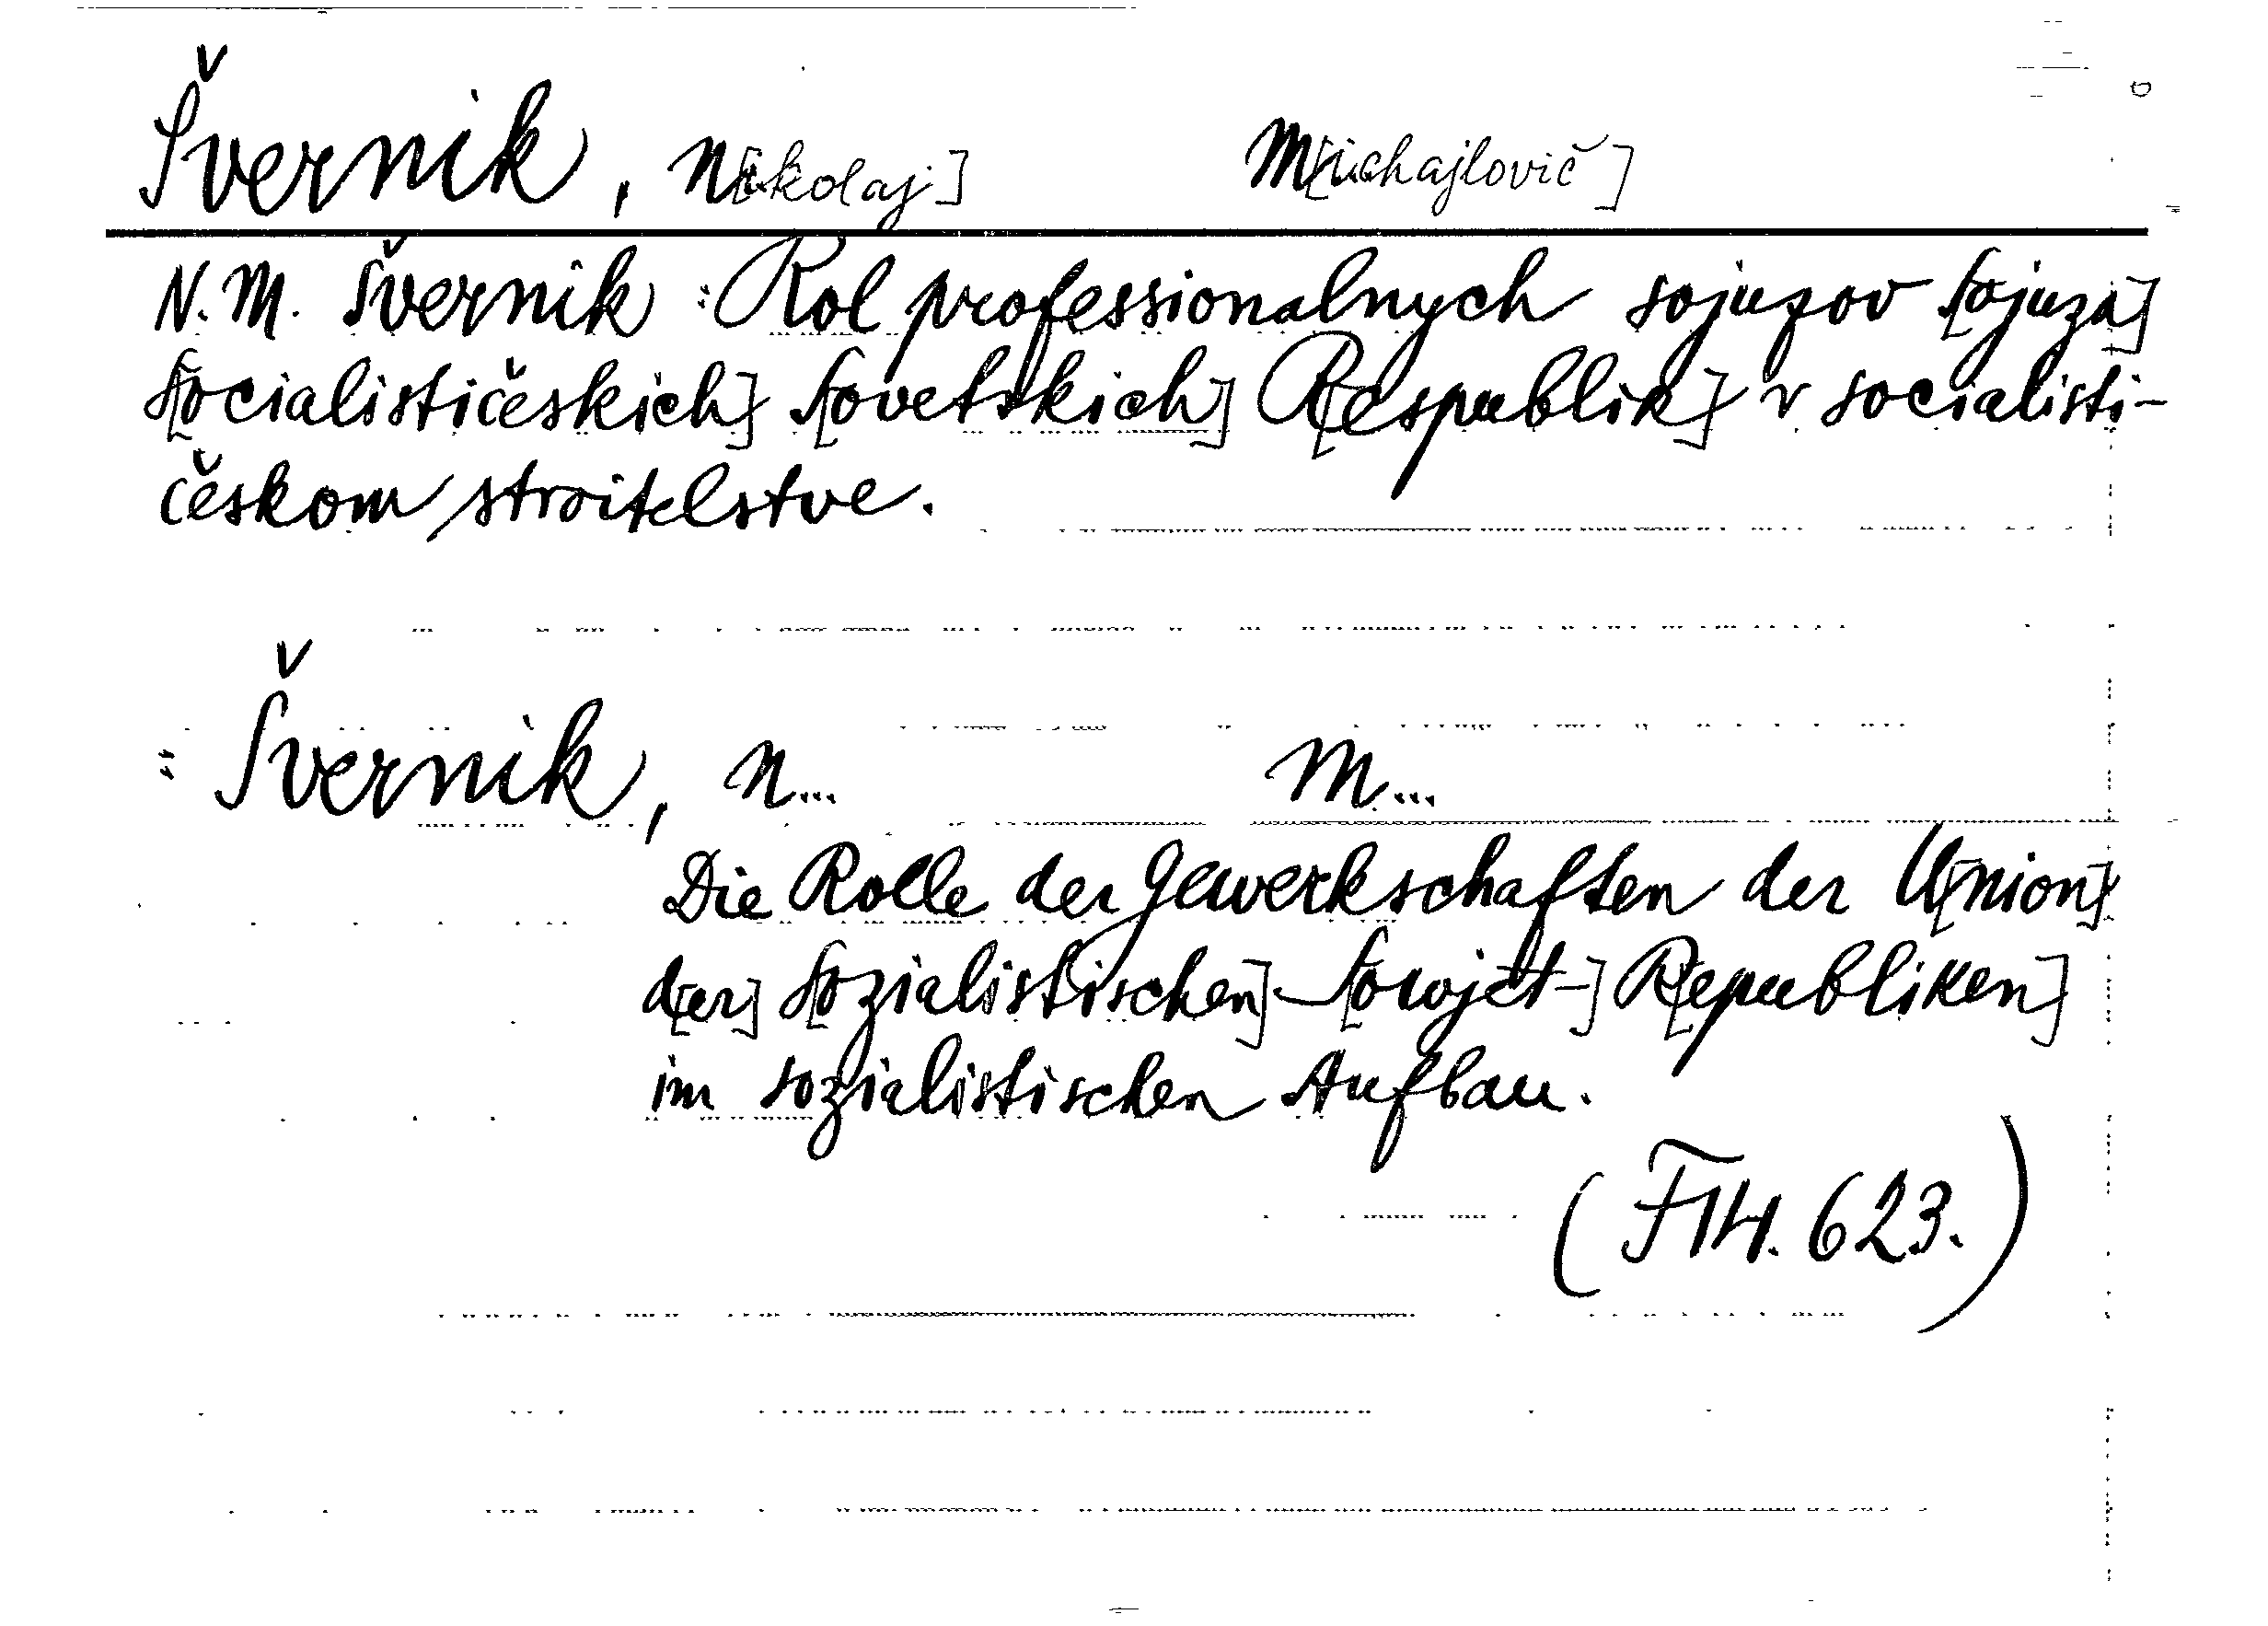 Švernik, N[ikolaj] M[ichajlovič]
N. M. Švernik: Rol professionalnych sojuzov S[ojuza]
S[ocialističeskich] S[ovetskich] R[espublik] v socialisti-
českom stroitelstve.
: Švernik, N... M...
Die Rolle der Gewerkschaften der U[nion]
d[er] S[ozialistischen]-S[owjet-]R[epubliken]
im sozialistischen Aufbau.
(F 14. 623.)